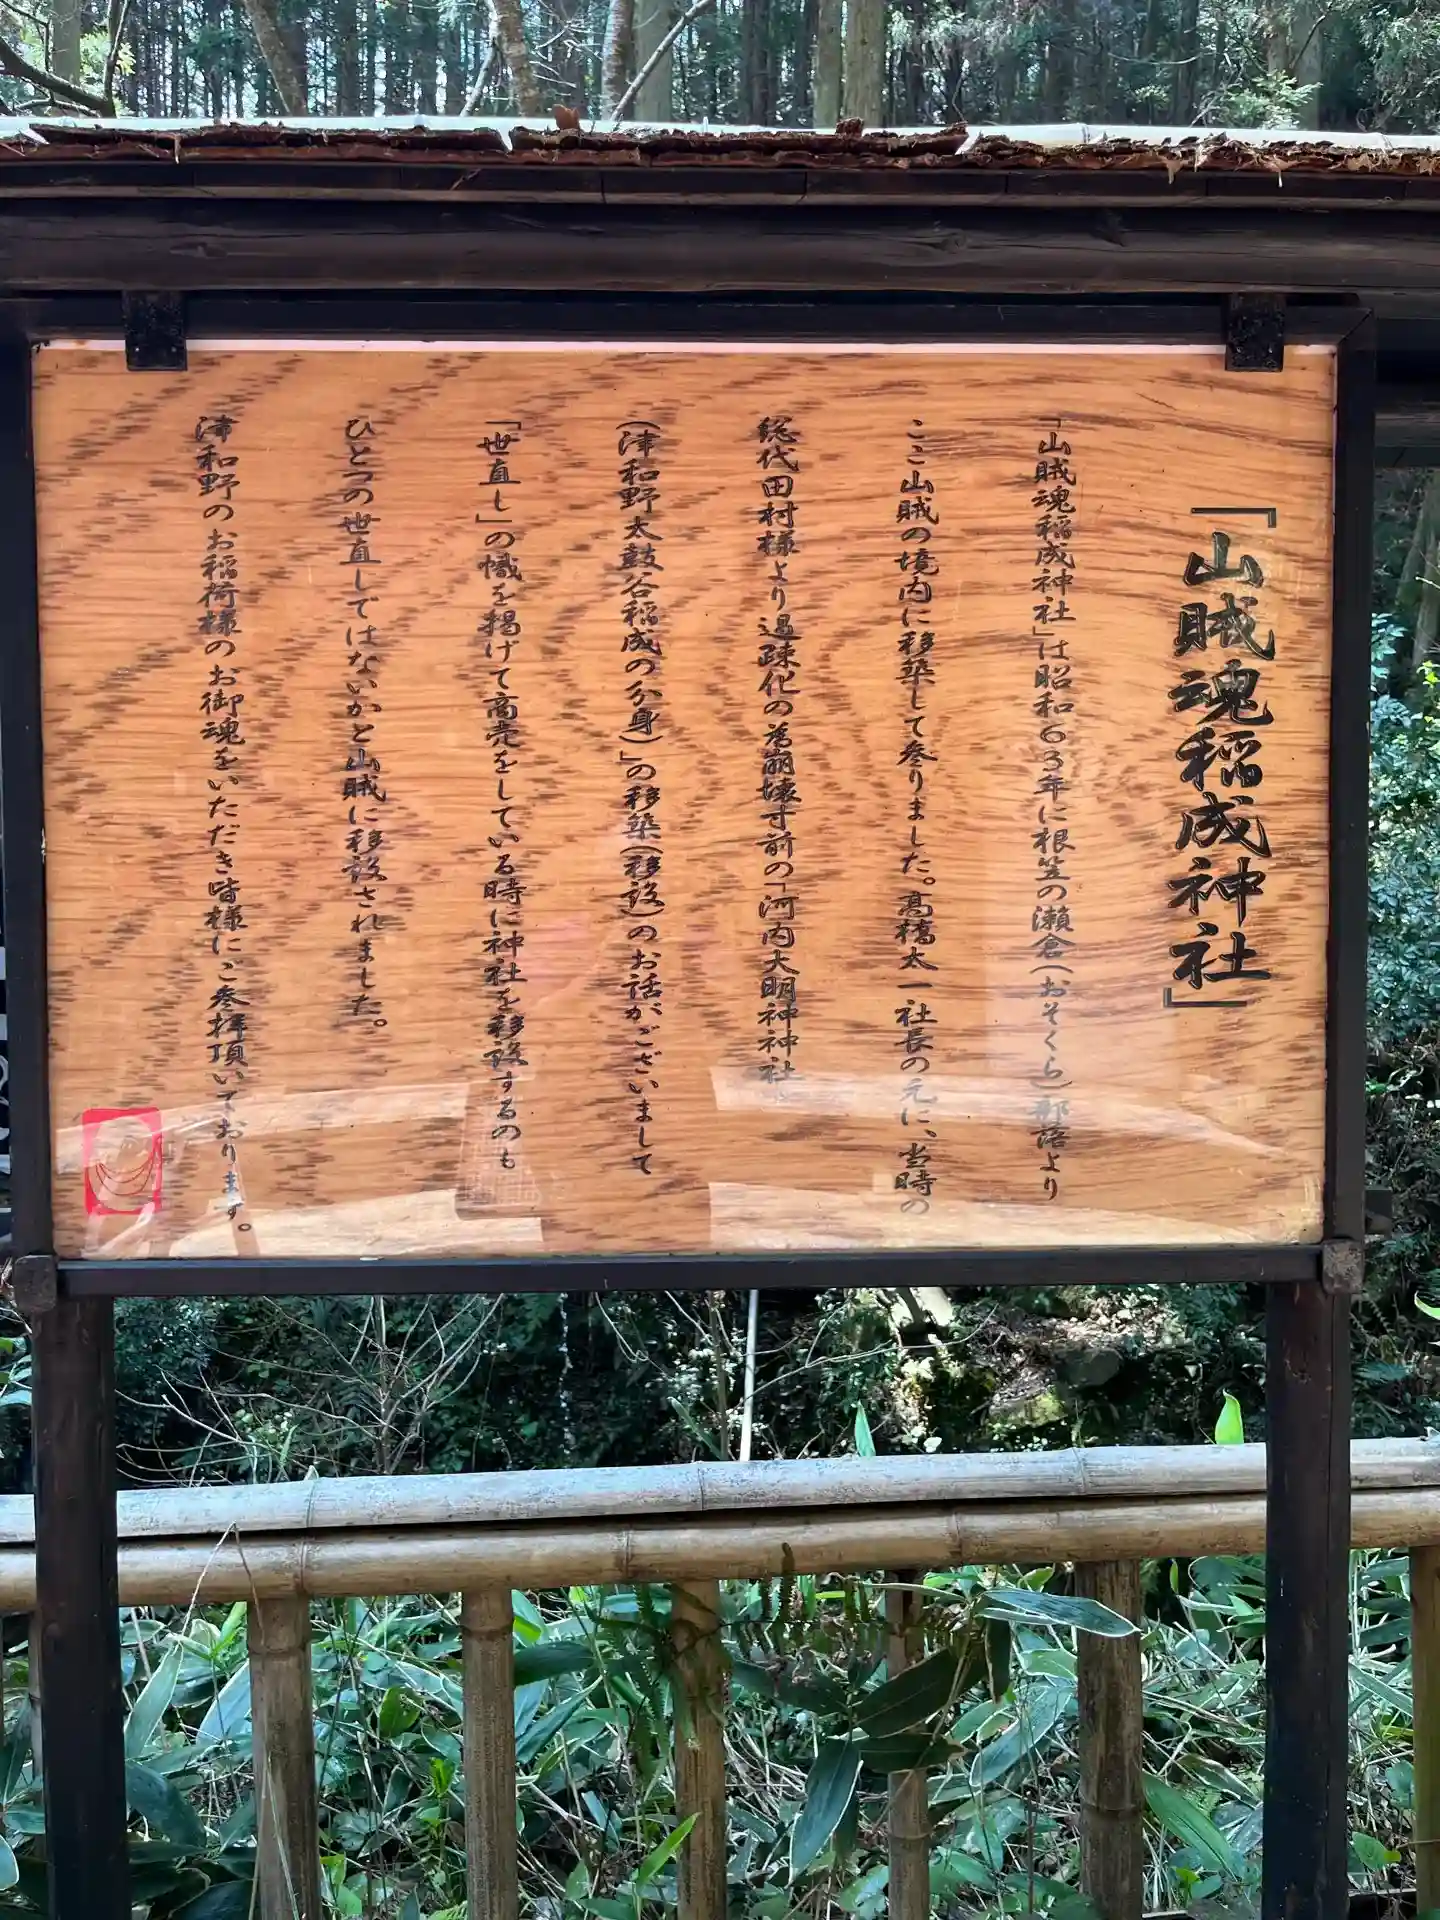 「山賊魂稲成神社」
「山賊魂稲成神社」は昭和63年に根笠の瀬倉(おそくら)部落より
ここ山賊の境内に移築して参りました。高橋太一社長の元に、当時の
総代田村様より過疎化の為崩壊寸前の「河内大明神神社
(津和野太鼓谷稲成の分身)」の移築(移設)のお話がございまして
「世直し」の幟を掲げて商売をしている時に神社を移設するのも
ひとつの世直しではないかと山賊に移設されました。
津和野のお稲荷様のお御魂をいただき皆様にご参拝頂いております。